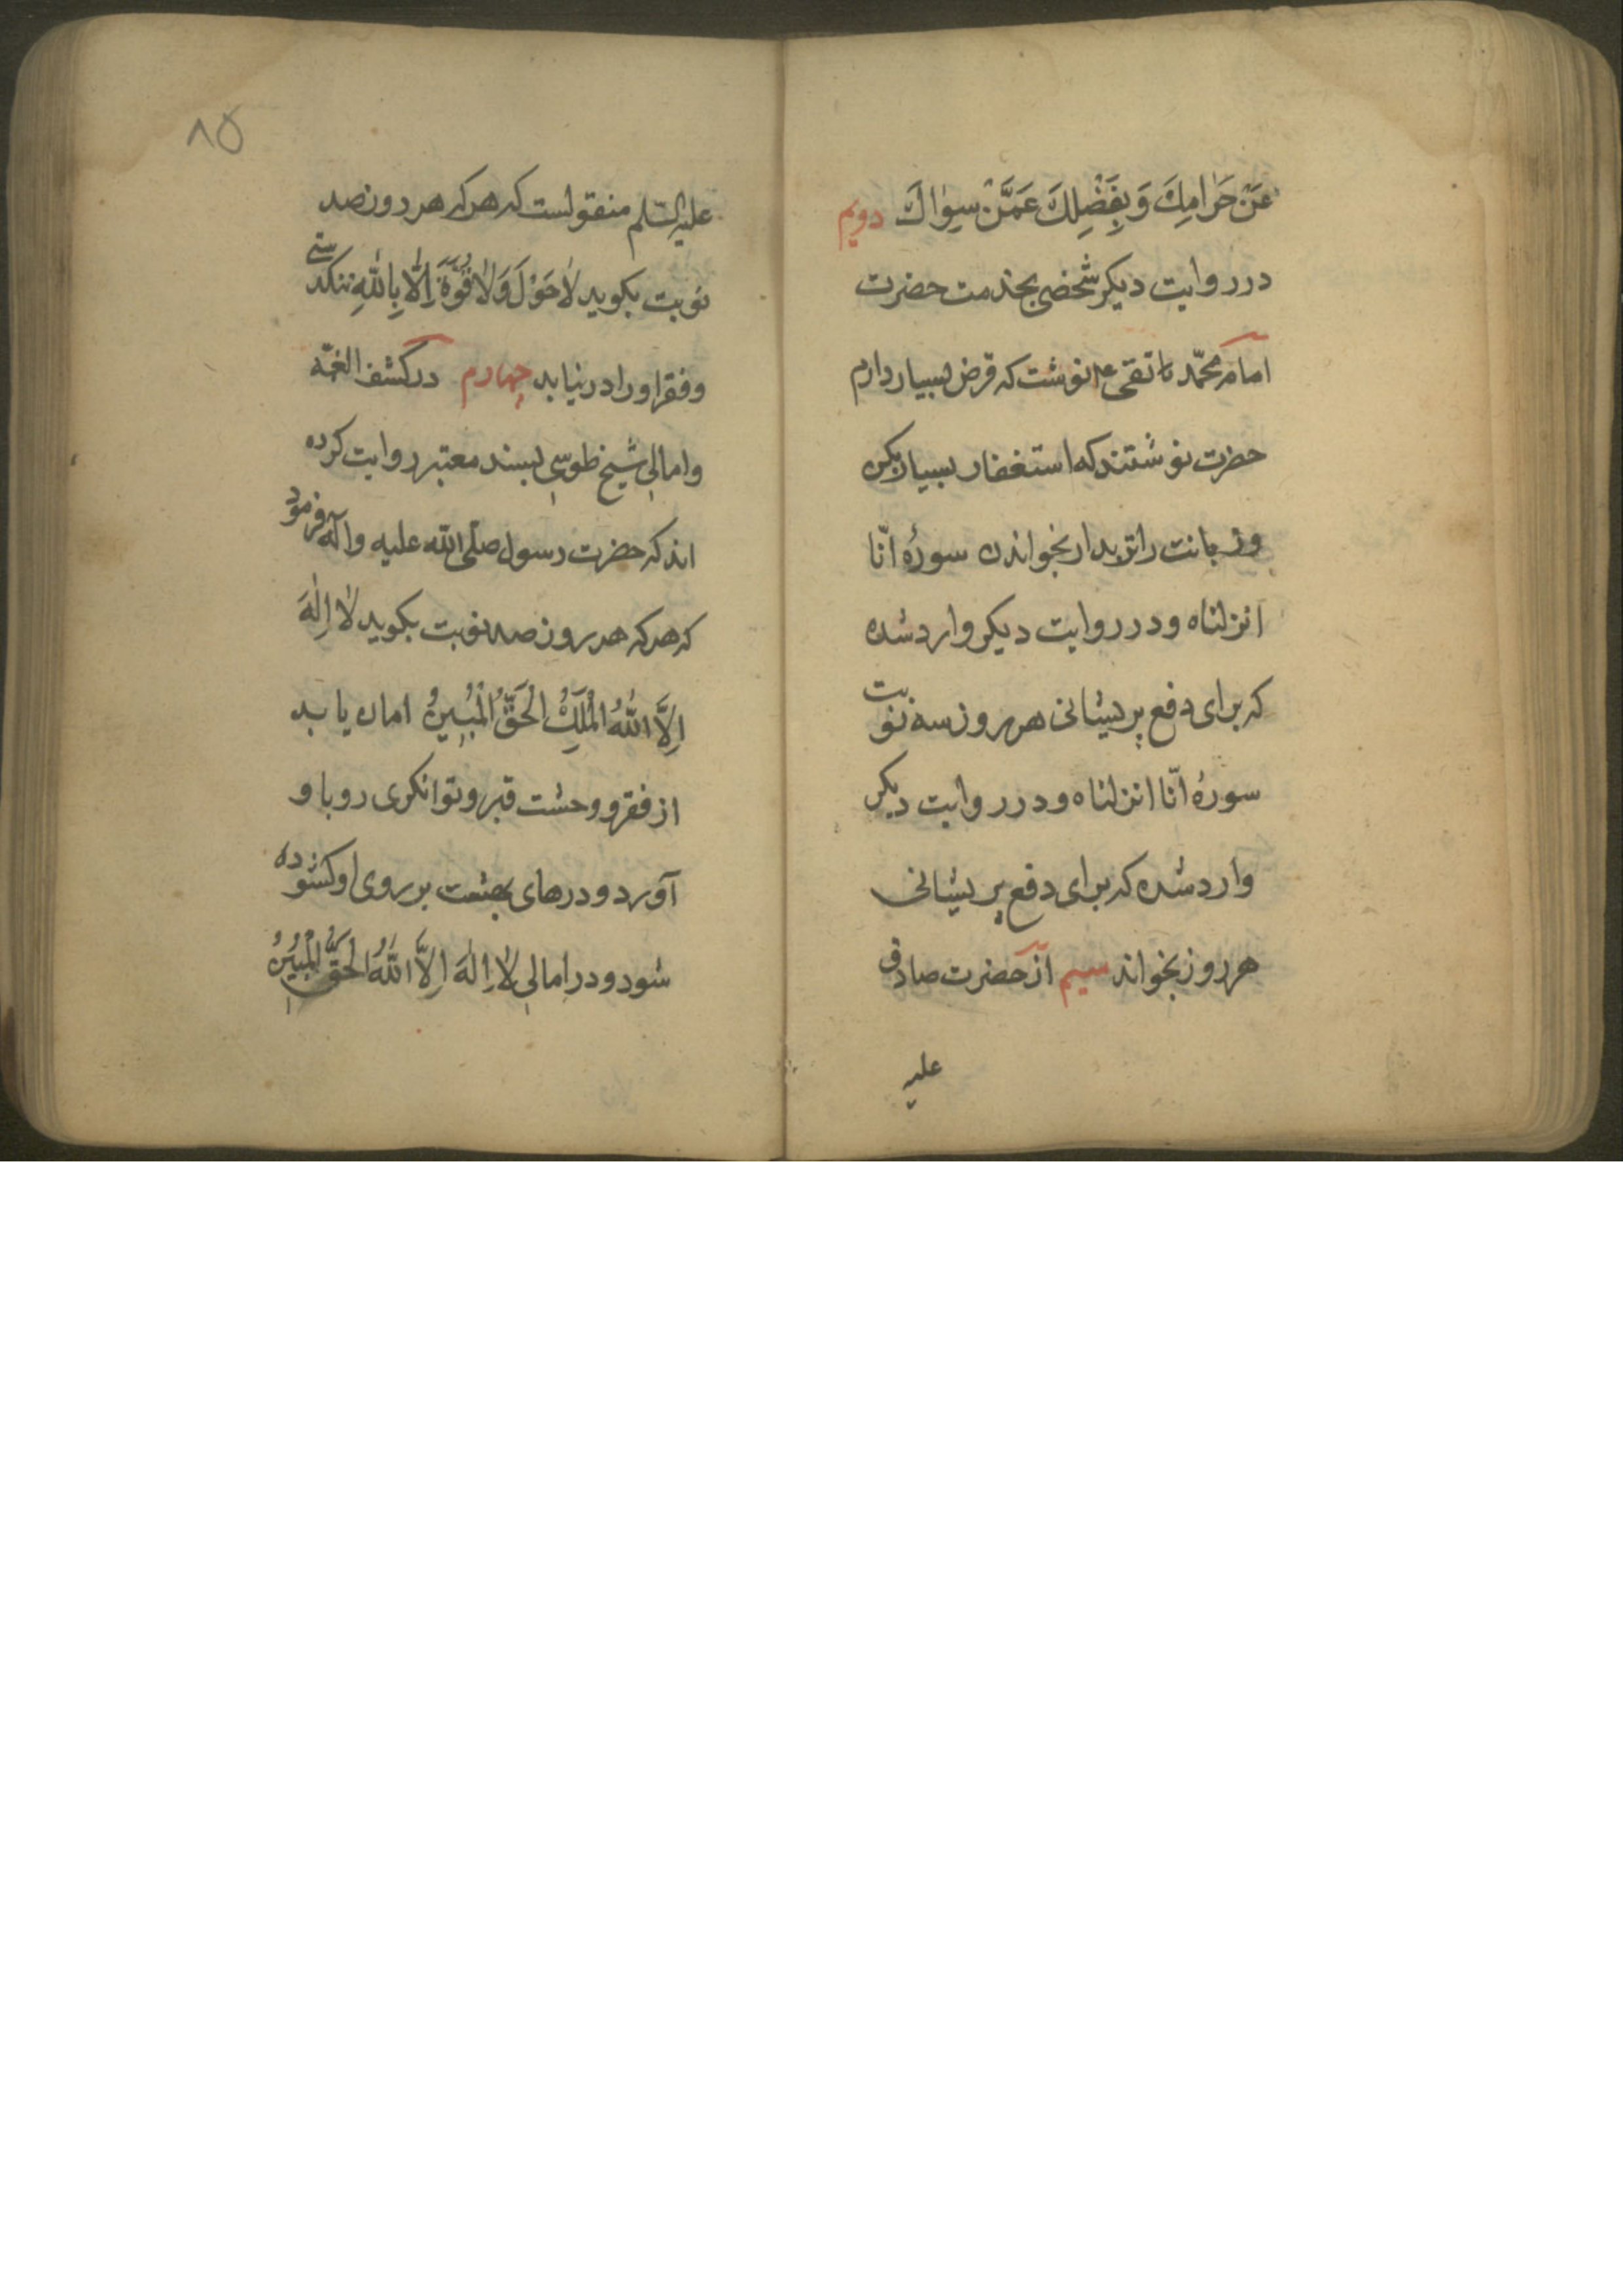 عَنْ حَرٰامِكَ وَبِفَضْلِكَ عَمَّنْ سِوٰاكَ دویم
در روایت دیکر شخصی بخدمت حضرت
امام محمّد تقی ع نوشت که قرض بسیار دارم
حضرت نوشتند که استغفار بسیار بکن
وزبانت را تر بدار بخواندن سورهٔ انّا
انزلناه ودر روایت دیکر وارد شده
که برای دفع پریشانی هر روز سه نوبت
سورهٔ انّا انزلناه ودر روایت دیکر
وارد شده که برای دفع پریشانی
هر روز بخواند سیم از حضرت صادق
علیه
۸۵
علیه السّلم منقولست که هر که هر روز صد
نوبت بکوید لٰا حَوْلَ وَلٰا قُوَّةَ اِلّٰا بِاللّٰهِ تنکدستی
وفقر او را در نیابد چهارم در کشف الغمّه
وامالی شیخ طوسی بسند معتبر روایت کرده
اند که حضرت رسول صلّی اللّه علیه وآله فرمود
که هر که هر روز صد نوبت بکوید لٰا اِلٰهَ
اِلَّا اللّٰهُ الْمَلِكُ الْحَقُّ الْمُبِینُ امان یابد
از فقر و وحشت قبر وتوانکری رو باو
آورد ودرهای بهشت بر روی او کشوده
شود ودر امالی لٰا اِلٰهَ اِلَّا اللّٰهُ الْحَقُّ الْمُبِینُ